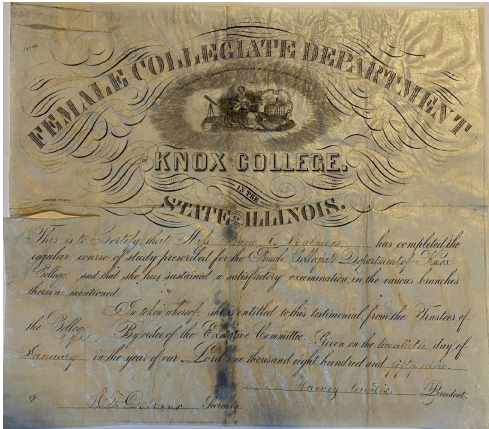 FEMALE COLLEGIATE DEPARTMENT
KNOX COLLEGE.
IN THE
STATE OF ILLINOIS.
This is to Certify, that Miss has completed the
regular course of study prescribed for the Female Collegiate Department of Knox
College, and that she has sustained a satisfactory examination in the various branches
therein mentioned
In token whereof, she is entitled to this testimonial from the Trustees of
the College. By order of the Executive Committee. Given on the twentieth day of
January in the year of our Lord one thousand eight hundred and fifty nine
Harvey Curtis President.
Secretary.